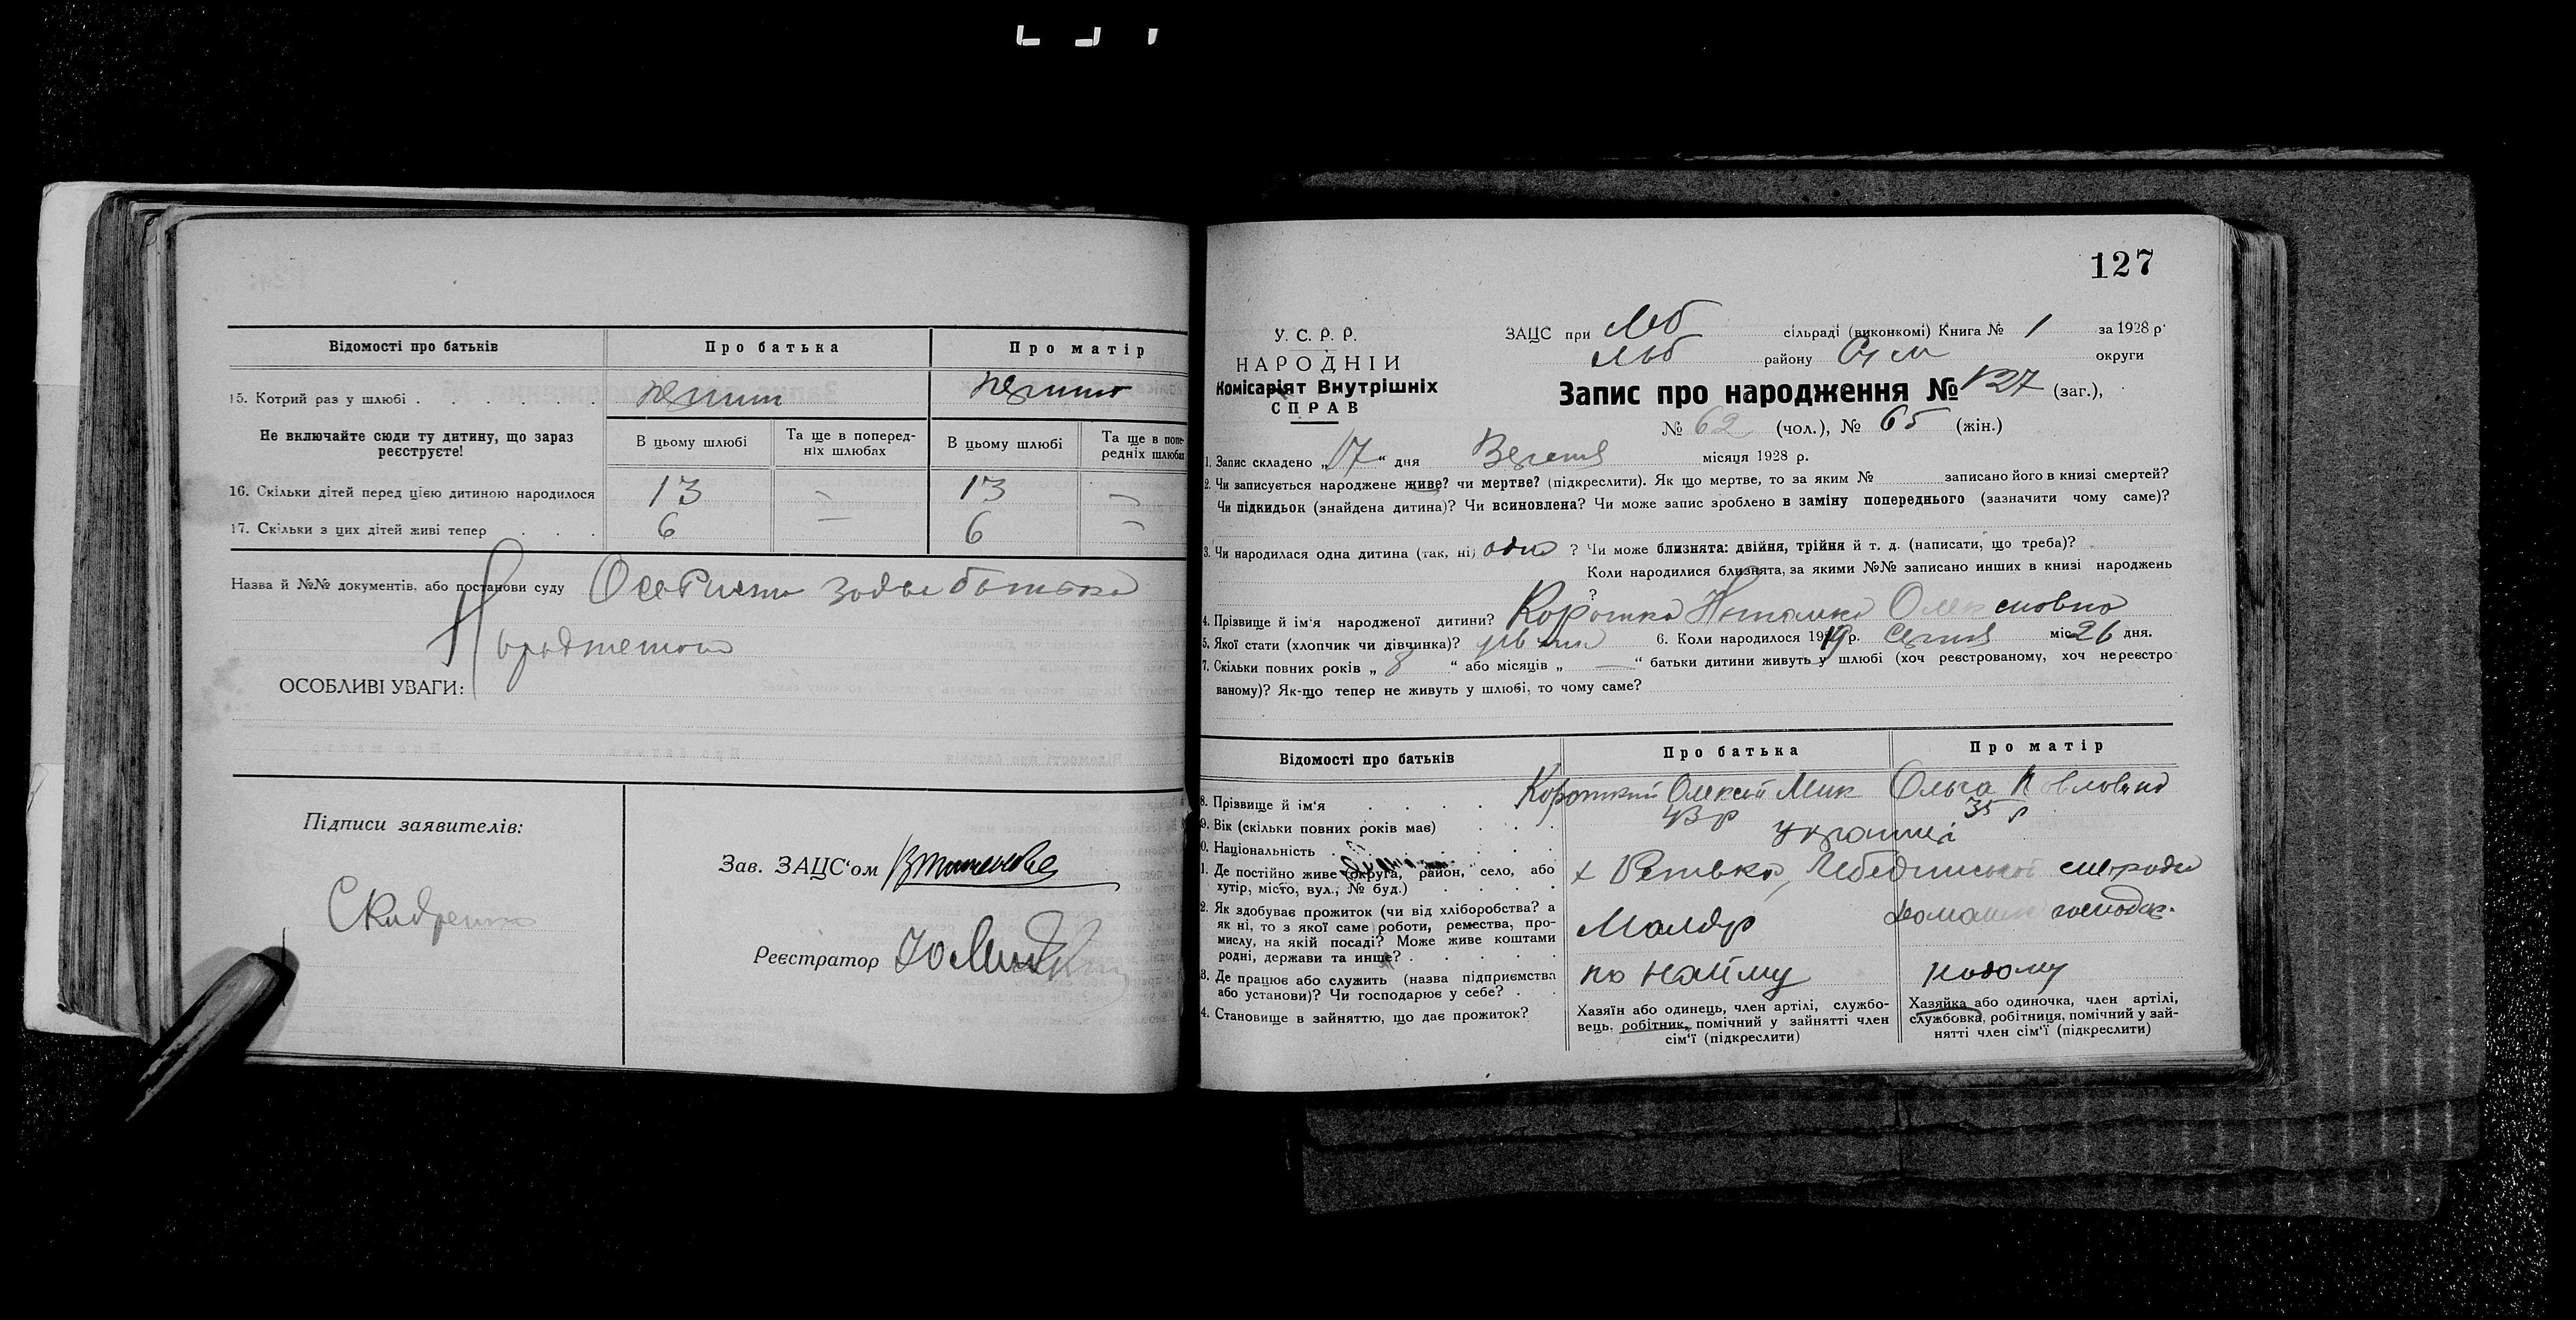 Відомості про батьків
Про батька
Про матір
15. Котрий раз у шлюбі
Не включайте сюди ту дитину, що зараз
реєструєте!
В цьому шлюбі
Та ще в поперед-
ніх шлюбах
В цьому шлюбі
Та ще в попе-
редніх шлюбах
16. Скільки дітей перед цією дитиною народилося 13 — 13 —
17. Скільки з цих дітей живі тепер 6 — 6 —
Назва й №№ документів, або постанови суду
ОСОБЛИВІ УВАГИ:
Підписи заявителів:
Зав. ЗАЦС'ом
Реєстратор
127
У. С. Р. Р.
НАРОДНІЙ
Комісаріят Внутрішніх
СПРАВ
ЗАЦС при Леб сільраді (виконкомі) Книга № 1 за 1928 р.
Леб району Сум округи
Запис про народження № 127 (заг.),
№ 62 (чол.), № 65 (жін.)
1. Запис складено „17“ дня місяця 1928 р.
2. Чи записується народжене живе? чи мертве? (підкреслити). Як що мертве, то за яким № записано його в книзі смертей?
Чи підкидьок (знайдена дитина)? Чи всиновлена? Чи може запис зроблено в заміну попереднього (зазначити чому саме)?
3. Чи народилася одна дитина (так, ні) одна ? Чи може близнята: двійня, трійня й т. д. (написати, що треба)?
Коли народилися близнята, за якими №№ записано инших в книзі народжень
?
4. Прізвище й ім'я народженої дитини? Коротка Наталка Олексіовна
5. Якої стати (хлопчик чи дівчинка)? 6. Коли народилося р. міс. 26 дня.
7. Скільки повних років „ “ або місяців „—“ батьки дитини живуть у шлюбі (хоч реєстрованому, хоч нереєстро
ваному)? Як-що тепер не живуть у шлюбі, то чому саме?
Відомості про батьків
Про батька
Про матір
8. Прізвище й ім'я Короткий Олексій Мик Ольга Павловна
9. Вік (скільки повних років має) 43 р 35 р
0. Національність українці
1. Де постійно живе (округа, район, село, або
хутір, місто, вул., № буд.)
2. Як здобуває прожиток (чи від хліборобства? а
як ні, то з якої саме роботи, ремества, про-
мислу, на якій посаді? Може живе коштами
родні, держави та инше?
Маляр
домашнє господар.
3. Де працює або служить (назва підприємства
або установи)? Чи господарює у себе?
по найму
4. Становище в зайняттю, що дає прожиток?
Хазяїн або одинець, член артілі, службо-
вець, робітник, помічний у зайнятті член
сім'ї (підкреслити)
Хазяйка або одиночка, член артілі,
службовка, робітниця, помічний у зай-
нятті член сім'ї (підкреслити)